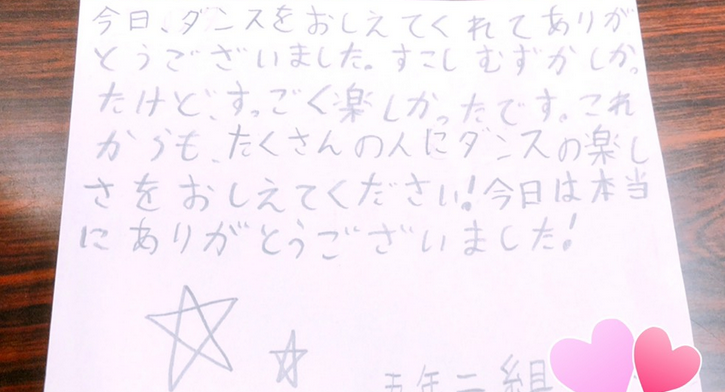 今日、ダンスをおしえてくれてありが
とうございました。すこしむずかしかっ
たけど、すっごく楽しかったです。これ
からも、たくさんの人にダンスの楽し
さをおしえてください!今日は本当
にありがとうございました!
五年二組